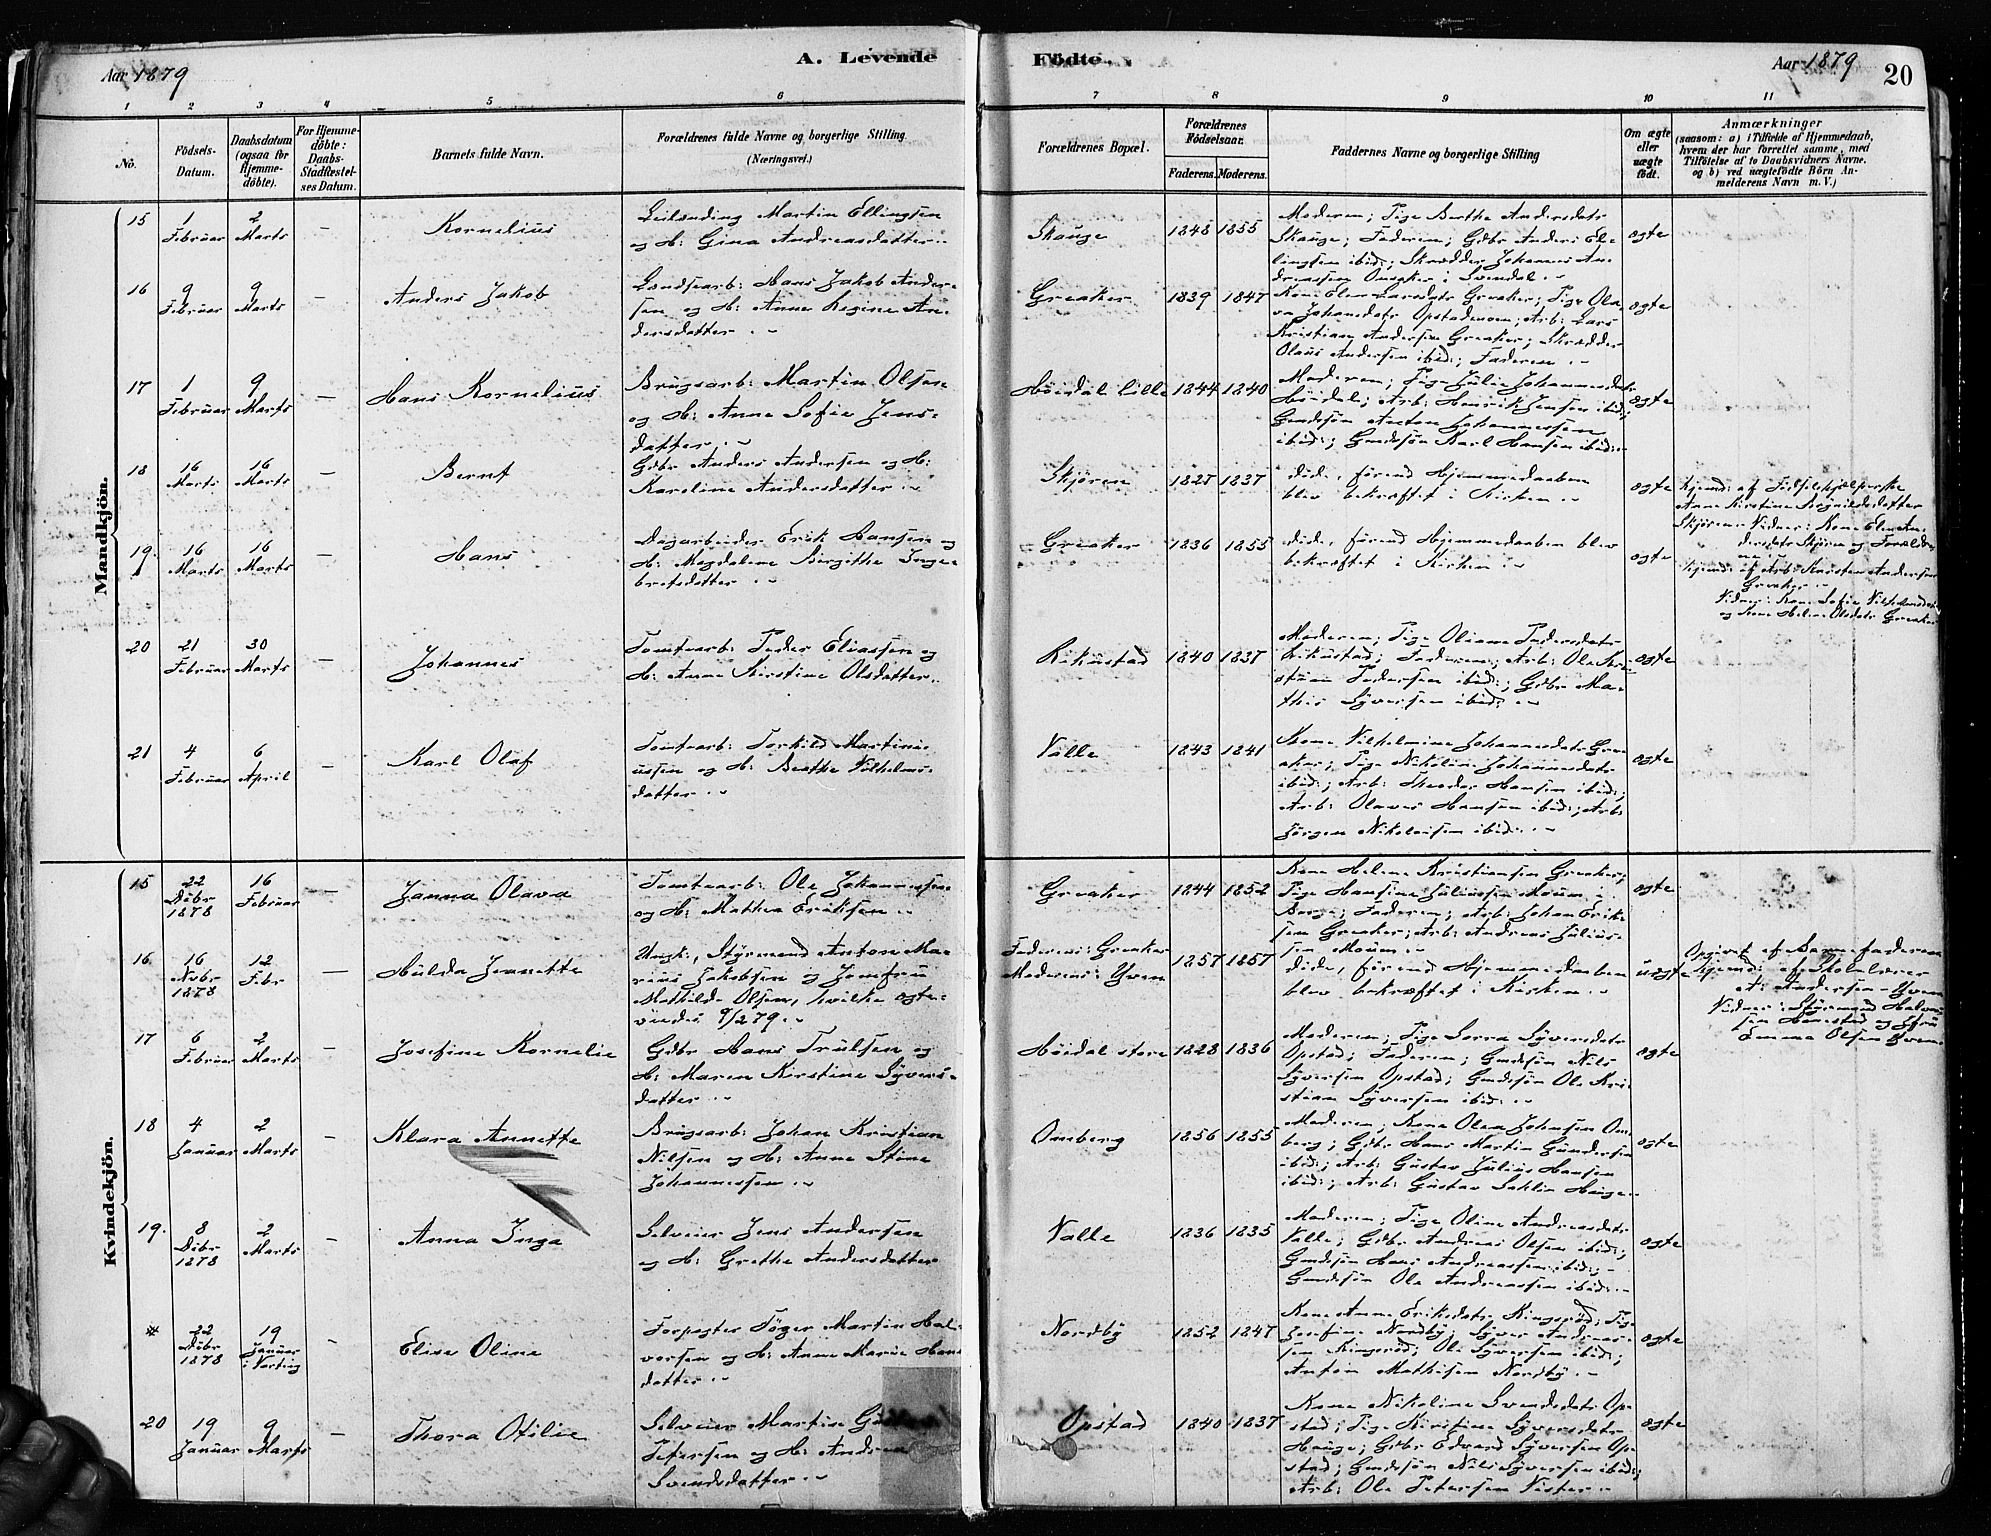 Aar 1879
A. Levende
Födte.
Aar 1879
20
1 2 3 4 5 6 7 8 9 10 11
No.
Födsels-
Datum.
Daabsdatum
(ogsaa for
Hjemme-
döbte).
For Hjemme-
döbte:
Daabs-
Stadfæstel-
ses Datum.
Barnets fulde Navn.
Forældrenes fulde Navne og borgerlige Stilling
(Næringsvei.)
Forældrenes Bopæl.
Forældrenes
Födselsaar.
Faderens.
Moderens.
Faddernes Navne og borgerlige Stilling
Om ægte
eller
uægte
født.
Anmærkninger
(saasom: a) i Tilfælde af Hjemmedaab,
hvem der har forrettet samme, med
Tilföielse af to Daabsvidners Navne.
og b) ved uægtefödte Börn An-
melderens Navn m. V.)
Mandkjön.
15
1
Februar
2
Marts
–
Kornelius
Leilænding Martin Ellingsen
og H: Gina Andreasdatter
Skauge
1848
1855
Moderen; Pige Berthe Andersdatr
Skauge; Faderen; Gdbr Anders El-
lingsen ibid:; Skrædder Johannes An-
dreassen Onsaker i Svendal
ægte
16
9
Februar
9
Marts
–
Anders Jakob
Landsarb: Hans Jakob Ander-
sen og H: Anne Regine An-
dersdatter
Greaker
1839
1847
Kone Elen Larsdatr Greaker; Pige Ola-
va Johansdatr Opstadmoen; Arb: Lars
Kristian Andersen Greaker; Skrædder
Olaus Andersen ibid:; Faderen
ægte
17
1
Februar
9
Marts
–
Hans Kornelius
Brugsarb: Martin Olsen
og H: Anne Sofie Jens-
datter
Höidal lille
1844
1840
Moderen; Pige Julie Johannesdatr
Höidal; Arb: Henrik Jensen ibid:;
Gmdsøn Anton Johannessen
ibid:; Gmdsøn Karl Hansen ibid:
ægte
18
16
Marts
16
Marts
–
Bernt
Gdbr Anders Andersen og H:
Karoline Andersdatter
Skjøren
1827
1837
død, førend Hjemmedaaben
blev bekræftet i Kirken
ægte
Hjemd: af Fødselshjælperske
Anne Kirstine Røgnildsdatter
Skjøren. Vidner: Kone Elen An-
dersdatr Skjøren og Foræld-
rene
19.
16
Marts
16
Marts
–
Hans
Dagarbeider Erik Hansen og
H: Magdalene Birgithe Inge-
bretsdatter
Greaker
1836
1855
død, førend Hjemmedaaben blev
bekræftet i Kirken
ægte
Hjemd: af Arb: Karsten Andersen
Greaker
Vidner: Kone Sofie Vilhelmsdatr
og Kone Helene Olsdatr Greaker
20
21
Februar
30
Marts
–
Johannes
Tomtearb: Peder Eliassen og
H: Anne Kirstine Olsdatter
Rikustad
1840
1837
Moderen; Pige Oliane Pedersdatr
Rikustad; Faderen; Arb: Ole Kri-
stian Pedersen ibid:; Gdbr Ma-
this Syversen ibid:
ægte
21
4
Februar
6
April
–
Karl Olaf
Tomtearb: Torkild Martini-
ussen og H: Berthe Vilhelms-
datter
Valle
1843
1841
Kone Vilhelmine Johannesdatr Gre-
aker; Pige Nikoline Johannesdatr
ibid:; Arb: Theodor Hansen ibid:;
Arb: Olaves Hansen ibid:; Arb:
Jörgen Nikolaisen ibid:
ægte
Kvindekjön.
15
22
Debr
1878
16
Februar
–
Janna Olava
Tomtearb: Ole Johannessen
og H: Mathea Eriksen
Greaker
1844
1852
Kone Helene Kristiansen Greaker;
Pige Hansine Juliussen Moum i
Borge; Faderen; Arb: Johan Erik-
sen Greaker; Arb: Andreas Julius-
sen Moum
ægte
16
16
Nvbr
1878
12
Febr
–
Hulda Jeanette
Ungk:, Styrmand Anton Ma-
rius Jakobsen og Jomfru
Mathilde Olsen, hvilke ægte-
viedes 9/2 79
Faderens: Greaker
Moderens: Yven
1857
1857
død, førend Hjemmedaaben
blev bekræftet i Kirken
uægte
Opgivet af Barnefaderen
Hjemd: af Skolelærer
A: Andersen Yven
Vidner: Styrmand Halvor-
sen Hanestad og Jfru
Emma Olsen Yven
17
6
Februar
2
Marts
–
Josefine Kornelie
Gdbr Hans Trulsen og
H: Maren Kirstine Syvers-
datter
Höidal store
1828
1836
Moderen; Pige Sorra Syversdatr
Opstad; Faderen; Gmdsøn Nils
Syversen Opstad; Gmdsøn Ole Kri-
stian Syversen ibid:
ægte
18
4
Januar
2
Marts
–
Klara Annette
Brugsarb: Johan Kristian
Nilsen og H: Anne Stine
Johannessen
Omberg
1856
1855
Moderen; Kone Olea Johansen Om-
berg; Gdbr Hans Martin Gundersen
ibid:; Arb: Gustav Julius Hansen
ibid:; Arb: Gustav Sehlin Hauge
ægte
19.
8
Debr
1878
2
Marts
–
Anna Inga
Selveier Jens Andersen
og H: Grethe Andersdatter
Valle
1836
1835
Moderen; Pige Oline Andreasdatr
Valle; Gdbr Andreas Olsen ibid:;
Gmdsøn Hans Andreassen ibid:;
Gmdsøn Ole Andreassen ibid:
ægte
*
22
Debr
1878
19
Januar
i Varteig
–
Elise Oline
Forpagter Töger Martin Hal-
vorsen og H: Anne Marie Hans
datter
Nordby
1852
1847
Kone Anne Eriksdatr Kingerød; Pige
Josefine Nordby; Syver Andreas-
sen Kingerød; Ole Syversen ibid:;
Anton Mathisen Nordby
ægte
20
19
Januar
9
Marts
–
Thora Otilie
Selveier Martin
Petersen og H: Andrea
Svendsdatter
Opstad
1840
1837
Kone Nikoline Svendsdatr Op-
stad; Pige Kirstine Syversdatr
Hauge; Gdbr Edvard Syversen Op-
stad; Gmdsøn Nils Syversen ibid:;
Arb: Ole Petersen Vister
ægte